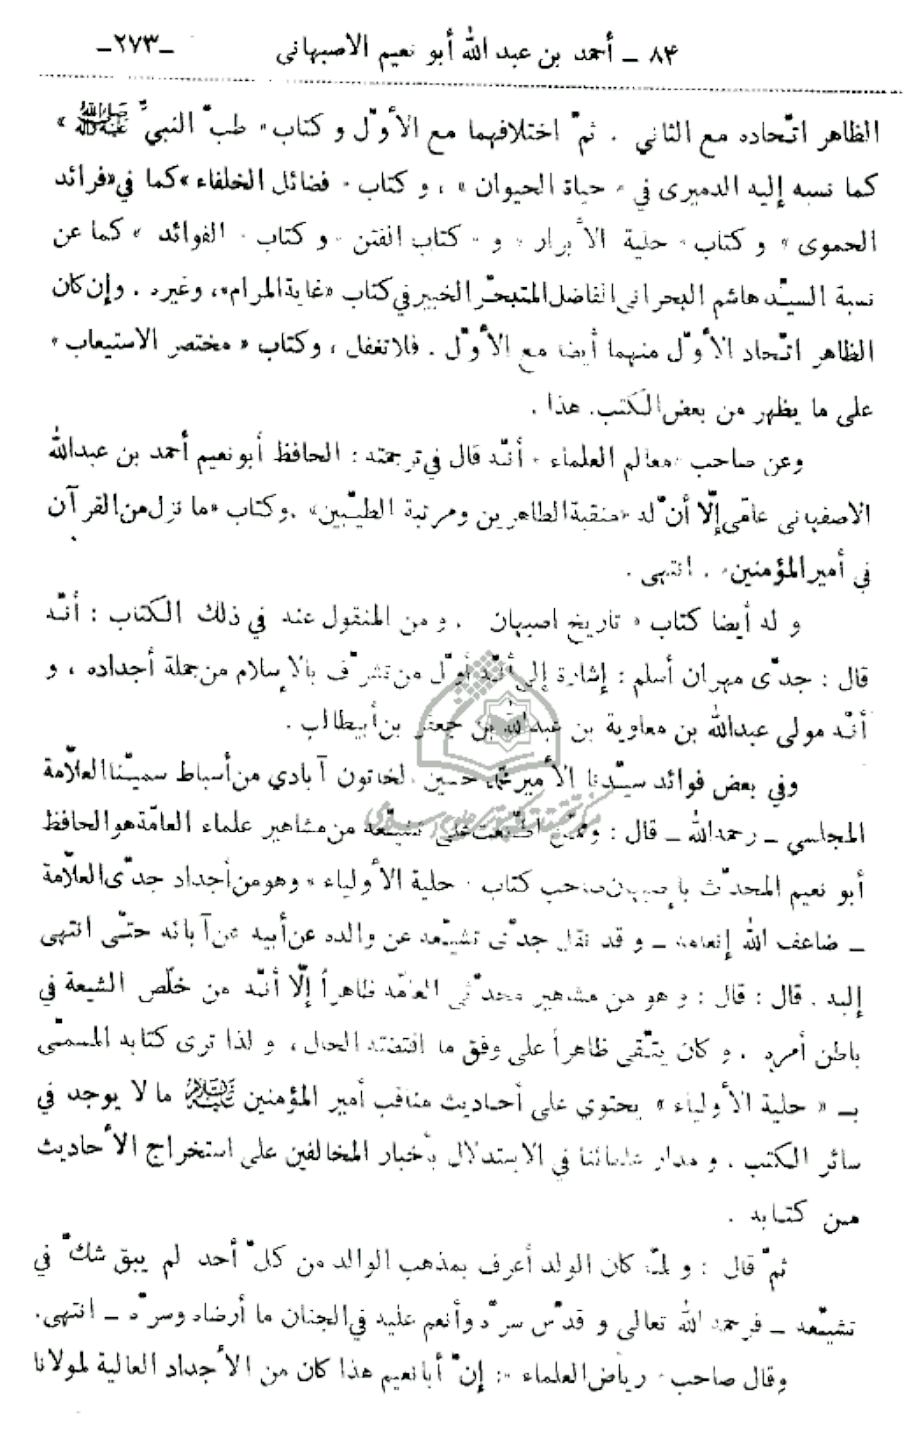 ۸۴ ـ أحمد بن عبد الله أبو نعيم الاصبهانى ـ۲۷۳ـ
الظاهر اتّحاده مع الثاني . ثمّ اختلافهما مع الأوّل و كتاب « طبّ النبيّ ﷺ »
كما نسبه إليه الدميرى في « حياة الحيوان » ، و كتاب « فضائل الخلفاء » كما في « فرائد
الحموى » و كتاب « حلية الأبرار » و « كتاب الفتن » و كتاب « الفوائد » كما عن
نسبة السيّد هاشم البحرانى الفاضل المتبحّر الخبير في كتاب « غاية المرام » ، وغيره . وإن كان
الظاهر اتّحاد الأوّل منهما أيضا مع الأوّل . فلا تغفل ، وكتاب « مختصر الاستيعاب »
على ما يظهر من بعض الكتب. هذا .
وعن صاحب « معالم العلماء » أنّه قال في ترجمته : الحافظ أبو نعيم أحمد بن عبدالله
الاصفهانى عامّى إلّا أنّ له « منقبة الطاهرين ومرتبة الطيّبين » . وكتاب « ما نزل من القرآن
في أمير المؤمنين » . انتهى .
و له أيضا كتاب « تاريخ اصبهان . و من المنقول عنه في ذلك الكتاب : أنّه
قال : جدّى مهران أسلم : إشارة إلى أنّه أوّل من تشرّف بالإسلام من جملة أجداده ، و
أنّه مولى عبدالله بن معاوية بن عبدالله بن جعفر بن أبيطالب .
وفي بعض فوائد سيّدنا الأمير محمّد حسين الخاتون آبادي من أسباط سميّنا العلّامة
المجلسي ـ رحمه الله ـ قال : وممّن اطّلعت على تشيّعه من مشاهير علماء العامّة هو الحافظ
أبو نعيم المحدّث بإصبهان صاحب كتاب « حلية الأولياء » وهو من أجداد جدّى العلّامة
ـ ضاعف الله إنعامه ـ و قد نقل جدّى تشيّعه عن والده عن أبيه عن آبائه حتّى انتهى
إليه . قال : قال : و هو من مشاهير محدّثي العامّة ظاهراً إلّا أنّه من خلّص الشيعة في
باطن أمره . و كان يتّقى ظاهراً على وفق ما اقتضته الحال ، و لذا ترى كتابه المسمّى
بـ « حلية الأولياء » يحتوي على أحاديث مناقب أمير المؤمنين عليه السلام ما لا يوجد في
سائر الكتب . و مدار علمائنا في الاستدلال بأخبار المخالفين على استخراج الأحاديث
من كتابه .
ثمّ قال : و لمّا كان الولد أعرف بمذهب الوالد من كلّ أحد لم يبق شكّ في
تشيّعه ـ فرحمه الله تعالى و قدّس سرّه وأنعم عليه في الجنان ما أرضاه وسرّه ـ انتهى.
وقال صاحب « رياض العلماء » : إنّ أبا نعيم هذا كان من الأجداد العالية لمولانا